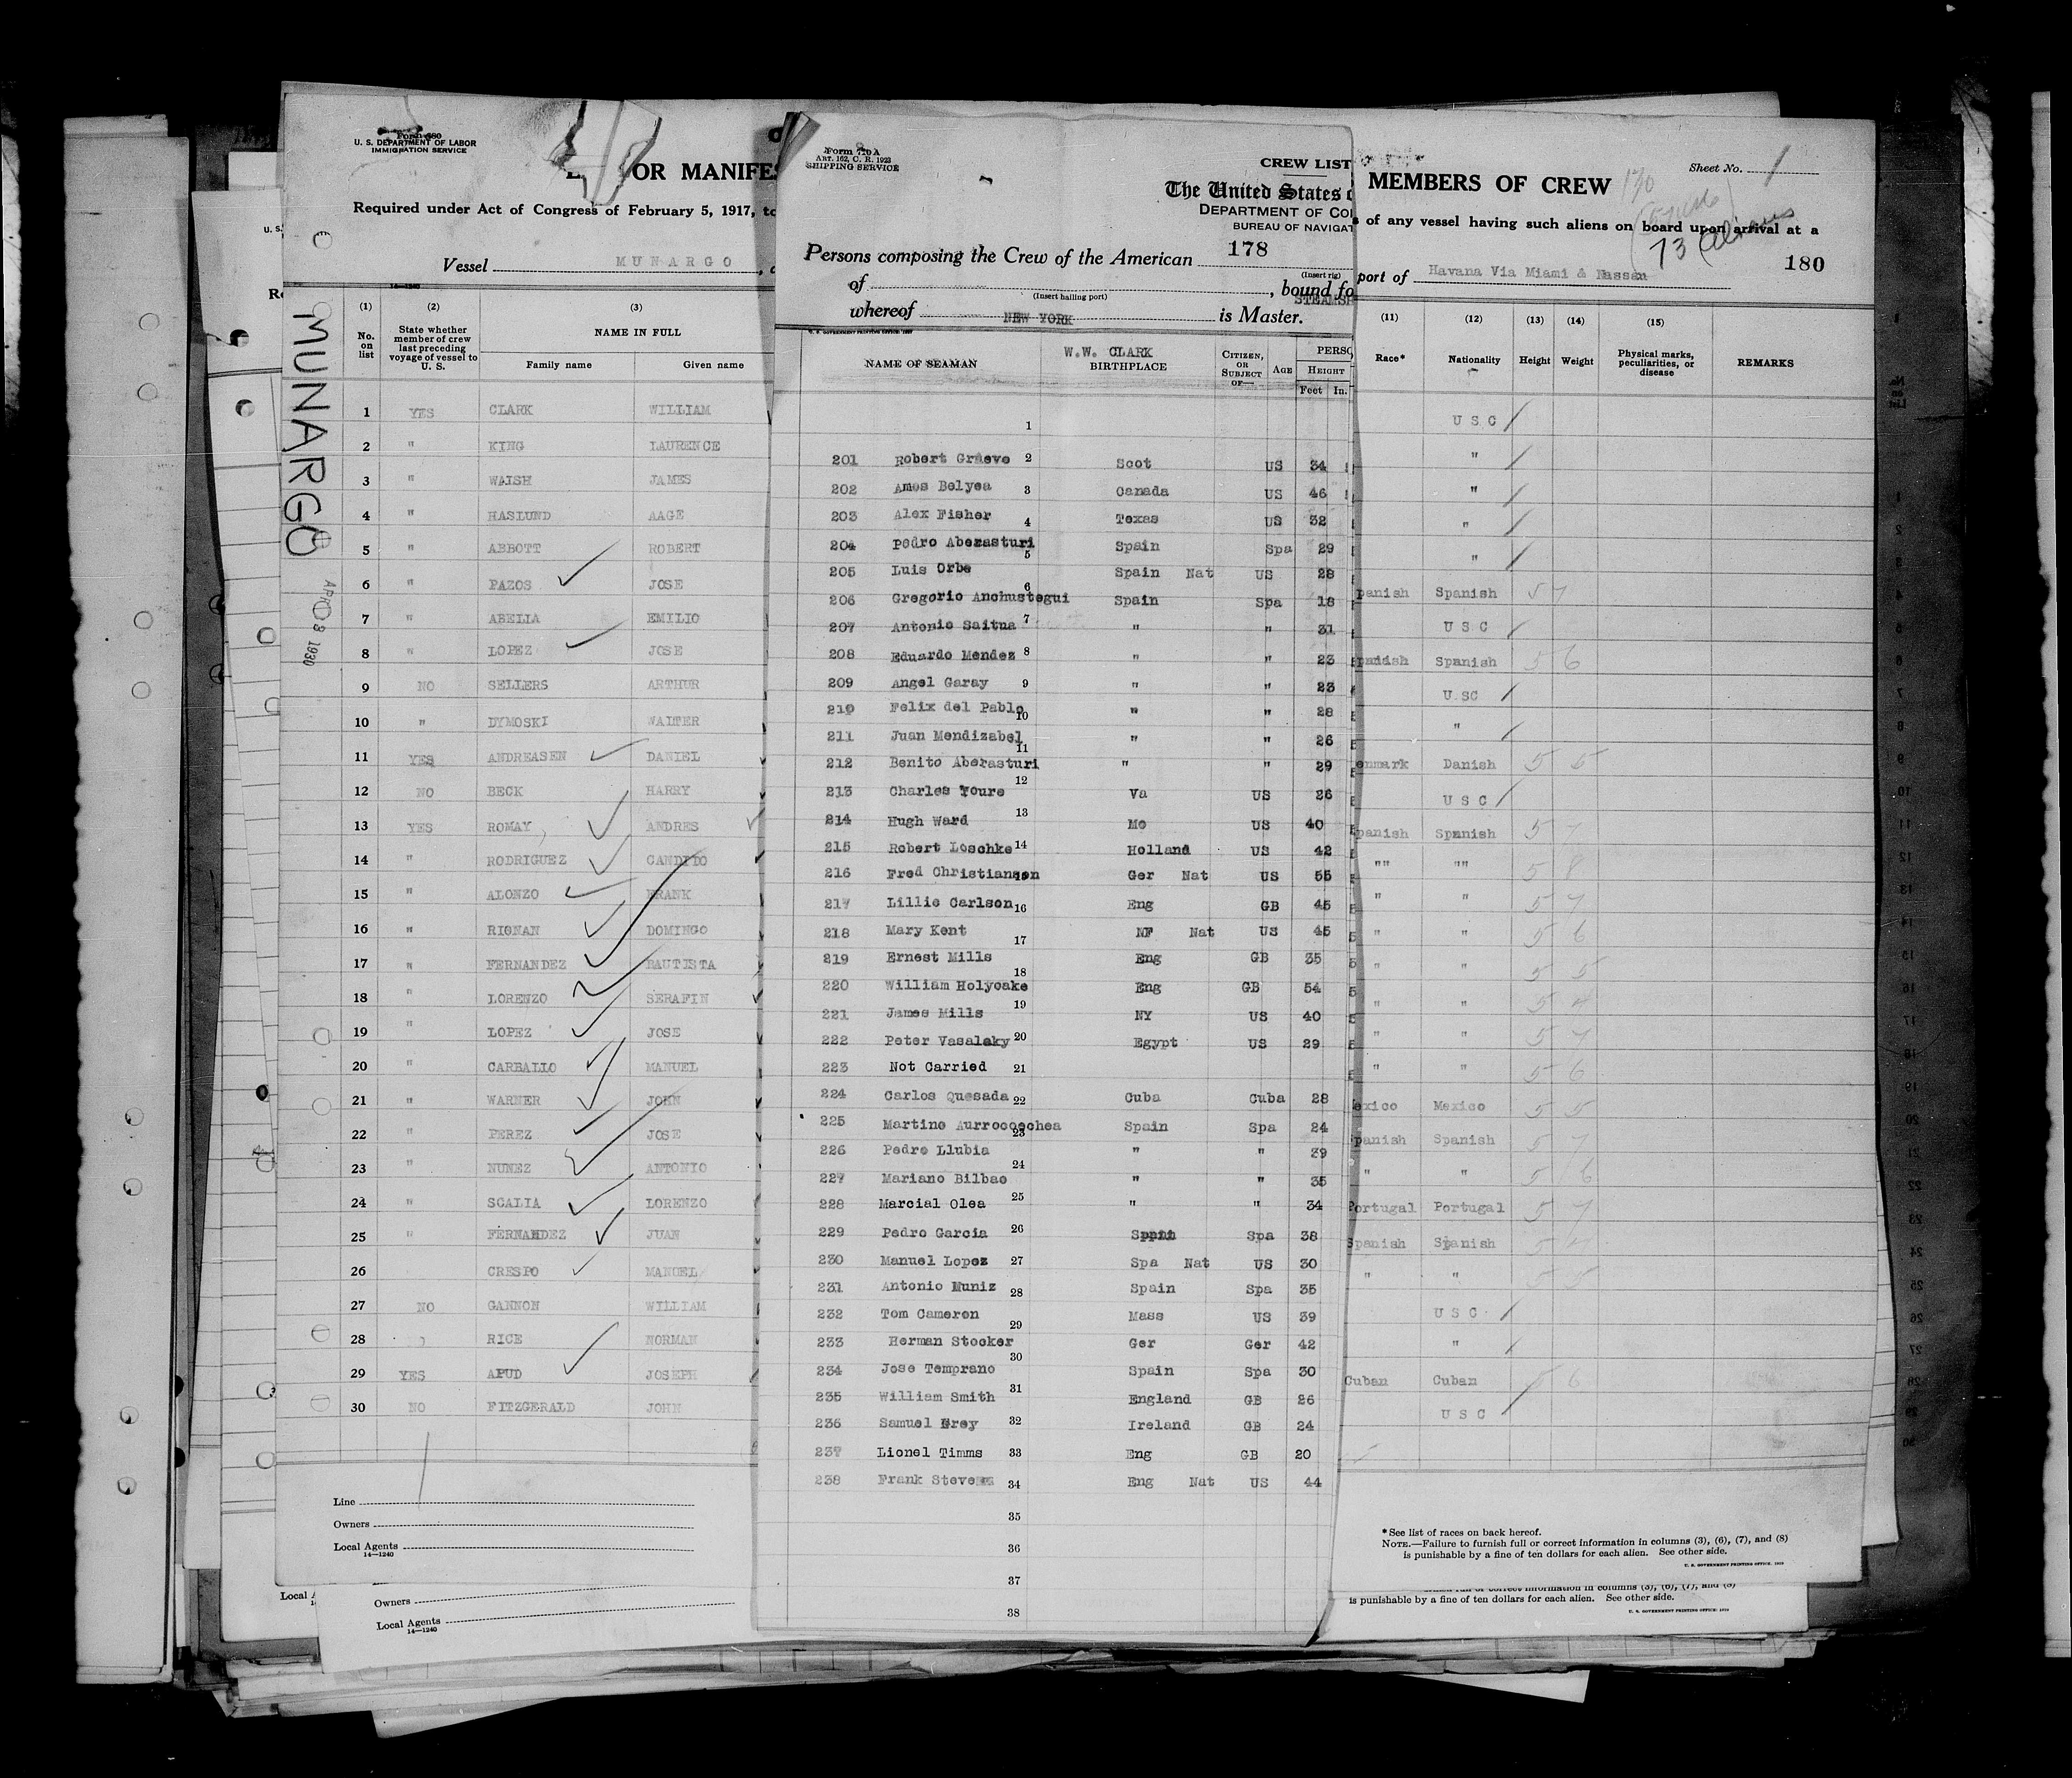 Form 680
U. S. DEPARTMENT OF LABOR
IMMIGRATION SERVICE
OR MANIFES
Required under Act of Congress of February 5, 1917, to
Vessel MUNARGO
MUNARGO
APR 8 1930
(1) (2) (3)
No. on list
State whether member of crew last preceding voyage of vessel to U. S.
NAME IN FULL
Family name Given name
1 YES CLARK WILLIAM
2 " KING LAURENCE
3 " WALSH JAMES
4 " HASLUND AAGE
5 " ABBOTT ROBERT
6 " PAZOS JOSE
7 " ABELIA EMILIO
8 " LOPEZ JOSE
9 NO SELLERS ARTHUR
10 " DYMOSKI WALTER
11 YES ANDREASEN DANIEL
12 NO BECK HARRY
13 YES ROMAY, ANDRES
14 " RODRIGUEZ CANDIDO
15 " ALONZO FRANK
16 " RIONAN DOMINGO
17 " FERNANDEZ BAUTISTA
18 " LORENZO SERAFIN
19 " LOPEZ JOSE
20 " CARBALLO MANUEL
21 " WARNER JOHN
22 " PEREZ JOSE
23 " NUNEZ ANTONIO
24 " SCALIA LORENZO
25 " FERNANDEZ JUAN
26 CRESPO MANUEL
27 NO GANNON WILLIAM
28 RICE NORMAN
29 YES APUD JOSEPH
30 NO FITZGERALD JOHN
Line
Owners
Local Agents
14—1240
Owners
Local Agents
14—1240
Form 710 A
ART. 162, C. R. 1923
SHIPPING SERVICE
CREW LIST
The United States o
DEPARTMENT OF CO
BUREAU OF NAVIGAT
Persons composing the Crew of the American 178
(Insert rig)
of , bound fo
(Insert hailing port)
STEAMSH
whereof NEW YORK is Master.
NAME OF SEAMAN
W.W. CLARK
BIRTHPLACE
CITIZEN, OR SUBJECT OF—
AGE
PERSO
HEIGHT
Feet In.
1
201 Robert Graeve 2 Scot US 34
202 Amos Belyea 3 Canada US 46
203 Alex Fisher 4 Texas US 32
204 Pedro Aberasturi 5 Spain Spa 29
205 Luis Orbe Spain Nat US 28
206 Gregorio Anchustegui 6 Spain Spa 18
207 Antonio Saitua 7 " " 31
208 Eduardo Mendez 8 " " 23
209 Angel Garay 9 " " 23
210 Felix del Pablo 10 " " 28
211 Juan Mendizabel 11 " " 26
212 Benito Aberasturi 12 " " 29
213 Charles Youre Va US 26
214 Hugh Ward 13 Mo US 40
215 Robert Loschke 14 Holland US 42
216 Fred Christianson Ger Nat US 55
217 Lillie Carlson 16 Eng GB 45
218 Mary Kent 17 NF Nat US 45
219 Ernest Mills 18 Eng GB 35
220 William Holyoake Eng GB 54
221 James Mills 19 NY US 40
222 Peter Vasalaky 20 Egypt US 29
223 Not Carried 21
224 Carlos Quesada 22 Cuba Cuba 28
225 Martino Aurrocoechea 23 Spain Spa 24
226 Pedro Llubia 24 " " 39
227 Mariano Bilbao " " 35
228 Marcial Olea 25 " " 34
229 Pedro Garcia 26 Spain Spa 38
230 Manuel Lopez 27 Spa Nat US 30
231 Antonio Muniz 28 Spain Spa 35
232 Tom Cameron 29 Mass US 39
233 Herman Stocker 30 Ger Ger 42
234 Jose Temprano Spain Spa 30
235 William Smith 31 England GB 26
236 Samuel Grey 32 Ireland GB 24
237 Lionel Timms 33 Eng GB 20
238 Frank Stevens 34 Eng Nat US 44
35
36
37
38
MEMBERS OF CREW
Sheet No. 1
s of any vessel having such aliens on board upon arrival at a
73 Aliens
180
port of Havana Via Miami & Nassau
(11) (12) (13) (14) (15)
Race* Nationality Height Weight Physical marks, peculiarities, or disease REMARKS
U S C /
" /
" /
" /
" /
panish Spanish 5 7
U S C /
panish Spanish 5 6
U SC /
" /
enmark Danish 5 5
U S C /
panish Spanish 5 7
"" "" 5 8
" " 5 7
" " 5 6
" " 5 5
" " 5 4
" " 5 7
" " 5 6
exico Mexico 5 5
panish Spanish 5 7
" " 5 6
Portugal Portugal 5 7
Spanish Spanish 5
" " 5 5
U S C /
" /
Cuban Cuban 5 6
U S C /
*See list of races on back hereof.
NOTE.—Failure to furnish full or correct information in columns (3), (6), (7), and (8)
is punishable by a fine of ten dollars for each alien. See other side.
U. S. GOVERNMENT PRINTING OFFICE
is punishable by a fine of ten dollars for each alien. See other side.